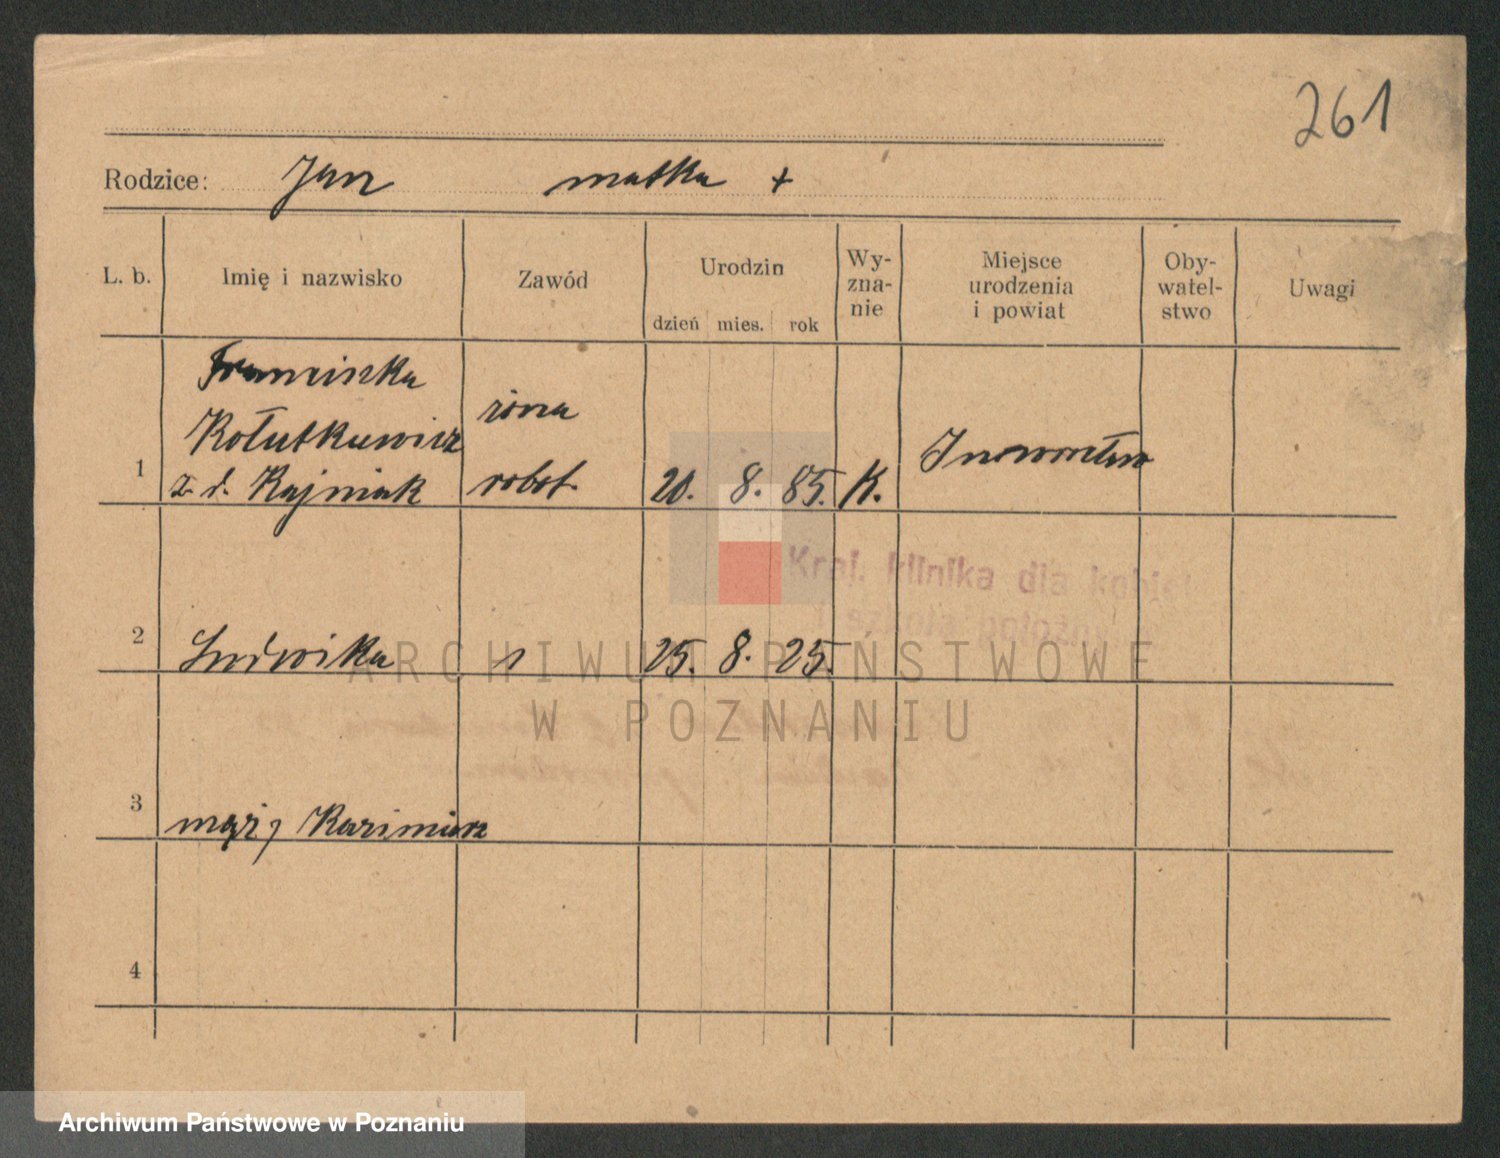 261
Rodzice: Jan matka +
L. b. Imię i nazwisko Zawód Urodzin dzień mies. rok Wy-zna-nie Miejsce urodzenia i powiat Oby-watel-stwo Uwagi
Franciszka
Kołutkiewicz żona
1 z d. Rajniak robot. 20. 8. 85. K.
Kraj. klinika dla kobiet
i szkoła położnych
2 Ludwika 25. 8. 25.
ARCHIWUM PAŃSTWOWE
W POZNANIU
3 mąż, Kazimierz
4
Archiwum Państwowe w Poznaniu